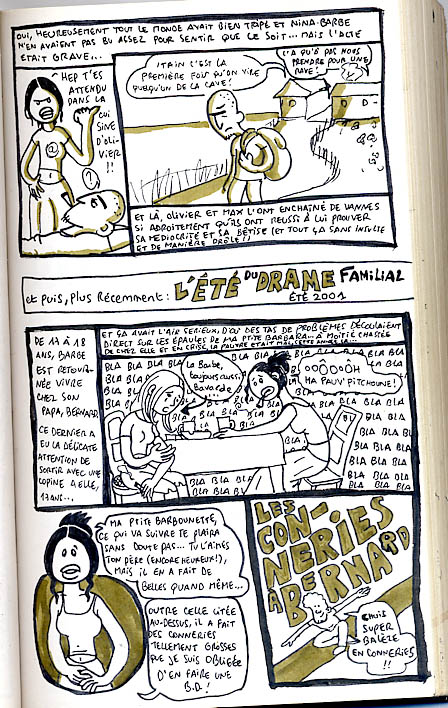 OUI, HEUREUSEMENT TOUT LE MONDE AVAIT BIEN TRIPÉ ET NINA-BARBE
N'EN AVAIENT PAS BU ASSEZ POUR SENTIR QUE CE SOIT... MAIS L'ACTE
ÉTAIT GRAVE...
HEP T'ES
ATTENDU
DANS LA
CUI
SINE
D'OLI-
VIER
!!
'TAIN C'EST LA
PREMIÈRE FOIS QU'ON VIRE
QUELQU'UN DE LA CAVE!
L'A QU'À PAS NOUS
PRENDRE POUR UNE
RAVE!
ET LÀ, OLIVIER ET MAX L'ONT ENCHAÎNÉ DE VANNES
SI ADROITEMENT QU'ILS ONT RÉUSSI À LUI PROUVER
SA MÉDIOCRITÉ ET SA BÊTISE (ET TOUT ÇA SANS INSULTE
ET DE MANIÈRE DRÔLE!)
et puis, plus Récemment: L'ÉTÉ DU DRAME FAMILIAL
ÉTÉ 2001
DE 17 À 18
ANS, BARBE
EST RETOUR-
NÉE VIVRE
CHEZ SON
PAPA, BERNARD.
CE DERNIER A
EU LA DÉLICATE
ATTENTION DE
SORTIR AVEC UNE
COPINE À ELLE,
17 ANS...
ET ÇA AVAIT L'AIR SÉRIEUX, D'OÙ DES TAS DE PROBLÈMES DÉCOULAIENT
DIRECT SUR LES ÉPAULES DE MA PTITE BARBARA... À MOITIÉ CHASSÉE
DE CHEZ ELLE ET EN CRISE, LA PAUVRE ÉTAIT MAL, CETTE ANNÉE LÀ...
BLA BLA BLA BLA BLA BLA
La Barbe,
toujours aussi
bavarde
OOOOOOH
MA PAUV' PITCHOUNE!
BLA BLA BLA BLA
BLA BLA BLA
BLA BLA BLA
BLA BLA BLA
MA PTITE BARBOUNETTE,
CE QUI VA SUIVRE TE PLAIRA
SANS DOUTE PAS... TU L'AIMES
TON PÈRE (ENCORE HEUREUX!),
MAIS IL EN A FAIT DE
BELLES QUAND MÊME...
OUTRE CELLE CITÉE
AU-DESSUS, IL A FAIT
DES CONNERIES
TELLEMENT GROSSES
QUE JE SUIS OBLIGÉE
D'EN FAIRE UNE
B.D.!
LES
CON-
NERIES
À BERNARD
CHUIS
SUPER
BALÈZE
EN CONNERIES
!!